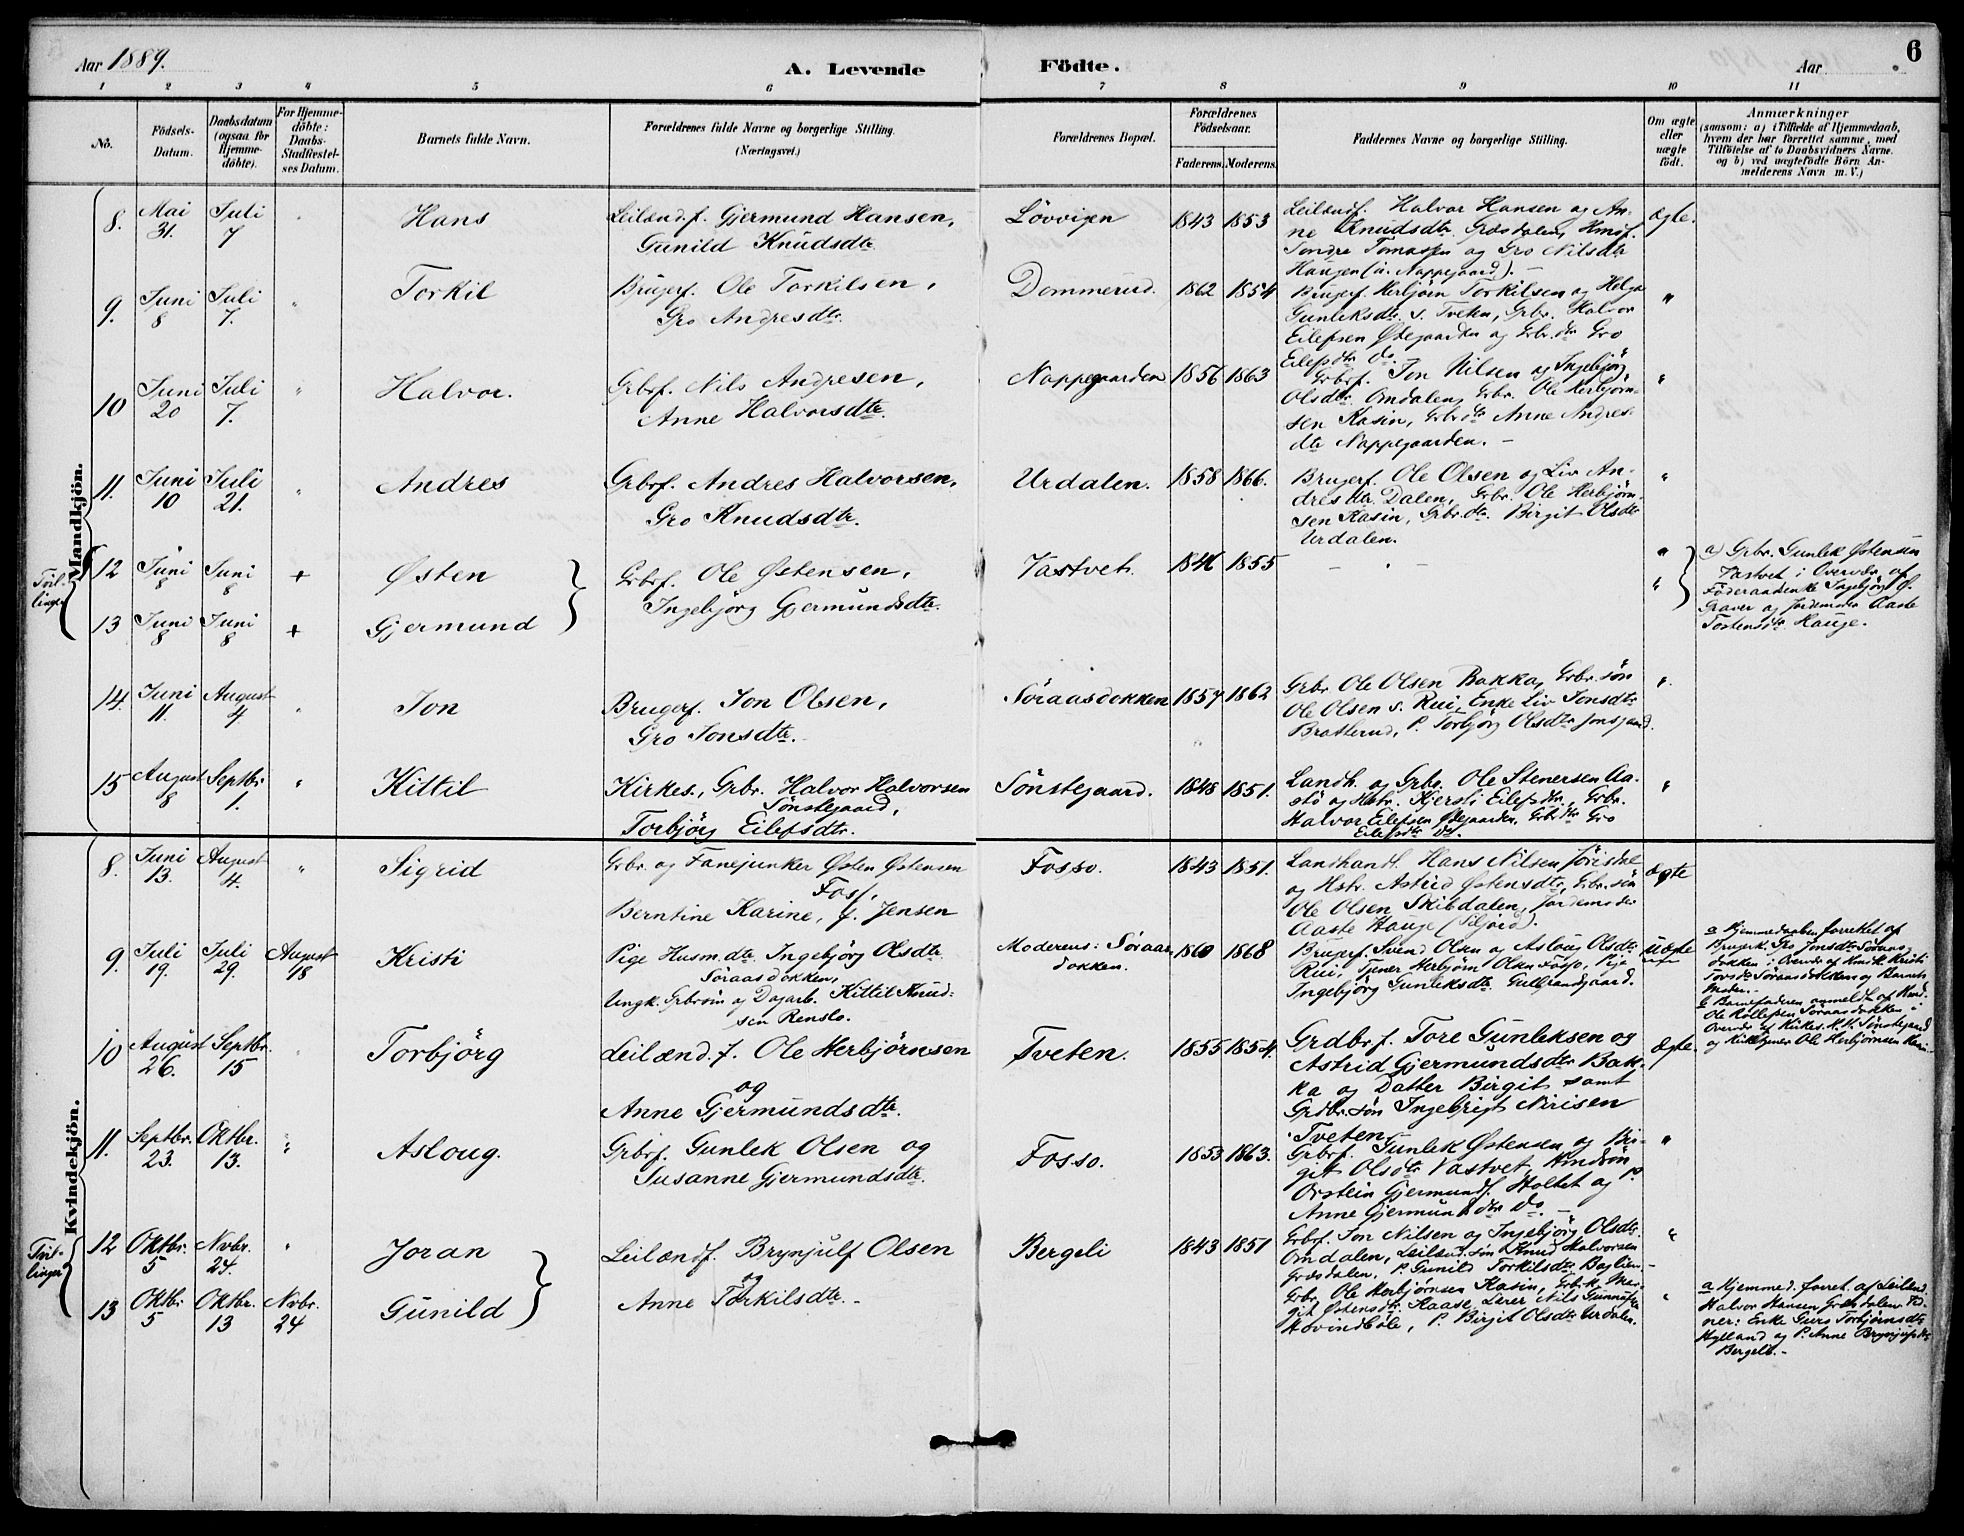 Aar 1889.
A. Levende Födte.
Aar
6
1 2 3 4 5 6 7 8 9 10 11
No.
Födsels-
Datum.
Daabsdatum
(ogsaa for
Hjemme-
döbte).
For Hjemme-
döbte:
Daabs-
Stadfæstel-
ses Datum.
Barnets fulde Navn.
Forældrenes fulde Navne og borgerlige Stilling.
(Næringsvei.)
Forældrenes Bopæl.
Forældrenes
Födselsaar.
Faderens.
Moderens.
Faddernes Navne og borgerlige Stilling.
Om ægte
eller
uægte
födt.
Anmærkninger
(saasom: a) i Tilfælde af Hjemmedaab,
hvem der har forrettet samme, med
Tilföielse af to Daabsvidners Navne.
og b) ved uægtefödte Börn An-
melderens Navn m. V.)
Mandkjön.
8.
Mai
31.
Juli
7
"
Hans
Leilænd.f. Gjermund Hansen,
Gunild Knudsdtr.
Lövvigen
1843
1853
Leilændf. Halvor Hansen og An-
ne Knudsdtr. Græsdalen, Hmsf.
Tondre Tomassen og Gro Nilsdtr
Haugen (u. Nappegaard). –
Ægte.
9.
Juni
8
Juli
7.
"
Torkil
Brugerf. Ole Torkilsen,
Gro Andresdtr.
Dommerud.
1862
1854
Brugerf. Herbjörn Torkilsen og Helga
Gunleksdtr. s. Tveten, Grbr. Halvor
Eilefsen Østegaarden og Grbr.dtr Gro
Eilefsdtr do.
"
10
Juni
20
Juli
7.
"
Halvor.
Grbrf. Nils Andresen,
Anne Halvorsdtr.
Nappegaarden
1856
1863
Grbrf. Jon Nilsen og Ingebjörg
Olsdtr. Omdalen, Grbr. Ole Herbjörn-
sen Kasin, Grbrdtr Anne Andres-
dtr Nappegaarden. –
"
11.
Juni
10
Juli
21.
"
Andres
Grbrf. Andres Halvorsen,
Gro Knudsdtr.
Urdalen.
1858
1866.
Brugerf. Ole Olsen og Liv An-
dresdtr. Dalen, Grbr. Ole Herbjörn-
sen Kasin, Grbr.dtr. Birgit Olsdtr
Urdalen.
"
Tvil-
linger
12
Juni
8
Juni
8
+
Østen
Grbrf. Ole Østensen,
Ingebjörg Gjermundsdtr.
Vastvet.
1846
1855
– " –
"
a) Grbr. Gunlek Østensen
Vastvet i Overvær af
Föderaadsenke Ingebjörg Ø.
Graver og Jordemoder Aaste
Torstensdtr. Hauge.
13
Juni
8
Juni
8
+
Gjermund
"
14.
Juni
11.
August
4
"
Jon
Brugerf. Jon Olsen,
Gro Jonsdtr.
Söraasdokken
1857
1862
Grbr. Ole Olsen Bakka, Grbr.sön
Ole Olsen s. Rui, Enke Liv Jonsdtr
Bratterud, P. Torbjörg Olsdtr Jonsgaard.
"
15
August
8
Septbr.
1.
"
Kittil
Kirkes., Grbr. Halvor Halvorsen
Sönstegaard,
Torbjörg Eilefsdtr.
Sönstegaard.
1848
1851.
Landh. og Grbr. Ole Stenersen Aa-
stö og Hstr. Kjersti Eilefsdtr., Grbr.
Halvor Eilefsen Østegaarden, Grbrdtr Gro
Eilefsdtr do.
"
Kvindekjön.
8.
Juni
13.
August
4.
"
Sigrid
Grbr. og Fanejunker Østen Østensen
Foss,
Berntine Karine, f. Jensen
Fosso.
1843
1851.
Landhandl. Hans Nilsen Jörisdal
og Hstr. Astrid Østensdtr, Grbr.sön
Ole Olsen Skibdalen, Jordemoder
Aaste Hauge (Siljord).
Ægte
9.
Juli
19.
Juli
29.
August
18
Kristi
Pige Husm.dtr. Ingebjörg Olsdtr
Söraasdokken,
Ungk. Grbrsön og Dagarb. Kittil Knud-
sen Renslo.
Moderens: Söraas-
dokken.
1860
1868
Brugerf. Svend Olsen og Asloug Olsdtr.
Rui, Tjener Herbjörn Olsen Fosso, Pige
Ingebjörg Gunleksdtr. Gulbrandgaard.
Uægte
a Hjemmedaaben forrettet af
Brugerk. Gro Jonsdtr Söraas-
dokken i Overvær af Hmdk. Kristi
Torsdtr Söraasdokken og Barnets
Moder. –
b Barnefaderen anmeldt af Hmd.
Ole Söraasdokken
Overvær af Kirkes. H. H. Sönstegaard
og Kirketjener Ole Herbjörnsen Kasin.
10
August
26.
Septbr.
15
"
Torbjörg
Leilænd.f. Ole Herbjörnsen
og
Anne Gjermundsdtr.
Tveten.
1855
1854.
Grdbrf. Tore Gunleksen og
Astrid Gjermundsdtr Bak-
ka og Datter Birgit samt
Grdbr.sön Ingebrigt Nirisen
Tveten.
Ægte.
11.
Septbr.
23.
Oktbr.
13.
"
Asloug.
Grbrf. Gunlek Olsen og
Susanne Gjermundsdtr.
Fosso.
1853
1863.
Grbrf. Gunlek Østensen og Bir-
git Olsdtr Vastvet, Hmdsön
Orstein Gjermunds. Holtet og P.
Anne Gjermundsdtr do. –
"
Tvil-
linger
12
Oktbr.
5
Nvbr.
24.
"
Joran
Leilændf. Brynjulf Olsen
og
Anne Torkilsdtr. –
Bergeli
1843
1851
Grbrf. Jon Nilsen og Ingebjörg Olsdtr.
Omdalen, Leilænd.sön Knud Halvorsen
Græsdalen, P. Gunild Torkilsdtr
"
13
Oktbr.
5
Oktbr.
13
Nvbr.
24
Gunild
Grbr. Ole Herbjörnsen Kasin, Grbrk. Mar-
git Østensdtr Kaase, Lærer Nils
Hovindböle, P. Birgit Olsdtr Urdalen.
"
a Hjemmed. forret. af Leilænd.
Halvor Hansen Græsdalen. Vid-
ner: Enke Guro Torbjörnsdtr
Hylland og P. Anne Brynjulfsdtr
Bergeli. –